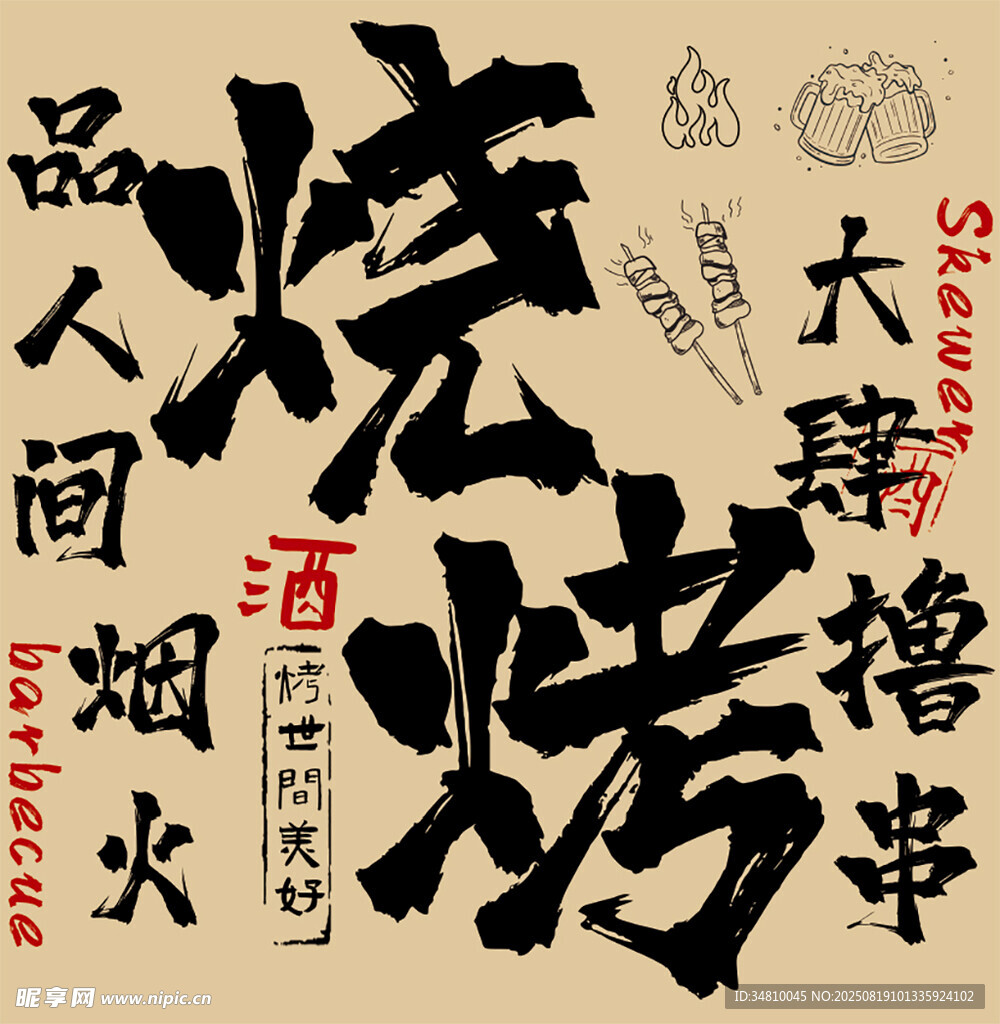 烧烤
品人间烟火
大肆撸串
Skewer
酒
酒
烤世間美好
barbecue
昵享网 www.nipic.cn
ID:34810045 NO:20250819101335924102